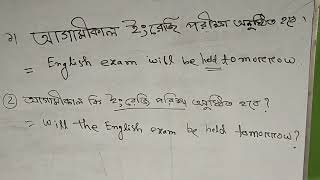 ১) আগামীকাল ইংরেজি পরীক্ষা অনুষ্ঠিত হবে।
= English exam will be held tomorrow
② আগামীকাল কি ইংরেজি পরীক্ষা অনুষ্ঠিত হবে?
= Will the English exam be held tomorrow?